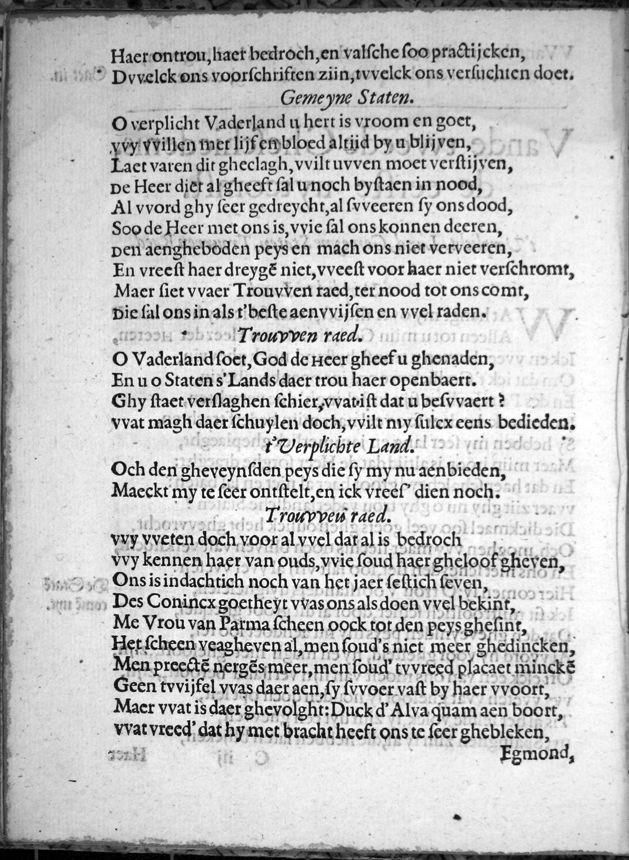 Haer ontrou, haer bedroch, en valsche soo practijcken,
Dvvelck ons voorschriften zijn, tvvelck ons versuchten doet.
Gemeyne Staten.
O verplicht Vaderland u hert is vroom en goet,
vvy vvillen met lijf en bloed altijd by u blijven,
Laet varen dit gheclagh, vvilt uvven moet verstijven,
De Heer diet al gheeft sal u noch bystaen in nood,
Al vvord ghy seer gedreycht, al svveeren sy ons dood,
Soo de Heer met ons is, vvie sal ons konnen deeren,
Den aengheboden peys en mach ons niet verveeren,
En vreest haer dreygē niet, vveest voor haer niet verschromt,
Maer siet vvaer Trouvven raed, ter nood tot ons comt,
Die sal ons in als t'beste aenvvijsen en vvel raden.
Trouvven raed.
O Vaderland soet, God de Heer gheef u ghenaden,
En u o Staten s'Lands daer trou haer openbaert.
Ghy staet verslaghen schier, vvat ist dat u besvvaert?
vvat magh daer schuylen doch, vvilt my sulcx eens bedieden.
t'Verplichte Land.
Och den gheveynsden peys die sy my nu aenbieden,
Maeckt my te seer ontstelt, en ick vrees' dien noch.
Trouvven raed.
vvy vveten doch voor al vvel dat al is bedroch
vvy kennen haer van ouds, vvie soud haer gheloof gheven,
Ons is indachtich noch van het jaer sestich seven,
Des Conincx goetheyt vvas ons als doen vvel bekint,
Me Vrou van Parma scheen oock tot den peys ghesint,
Het scheen veagheven al, men soud's niet meer ghedincken,
Men preectē nergēs meer, men soud' tvvreed placaet minckē
Geen tvvijfel vvas daer aen, sy svvoer vast by haer vvoort,
Maer vvat is daer ghevolght: Duck d'Alva quam aen boort,
vvat vreed' dat hy met bracht heeft ons te seer ghebleken,
Egmond,